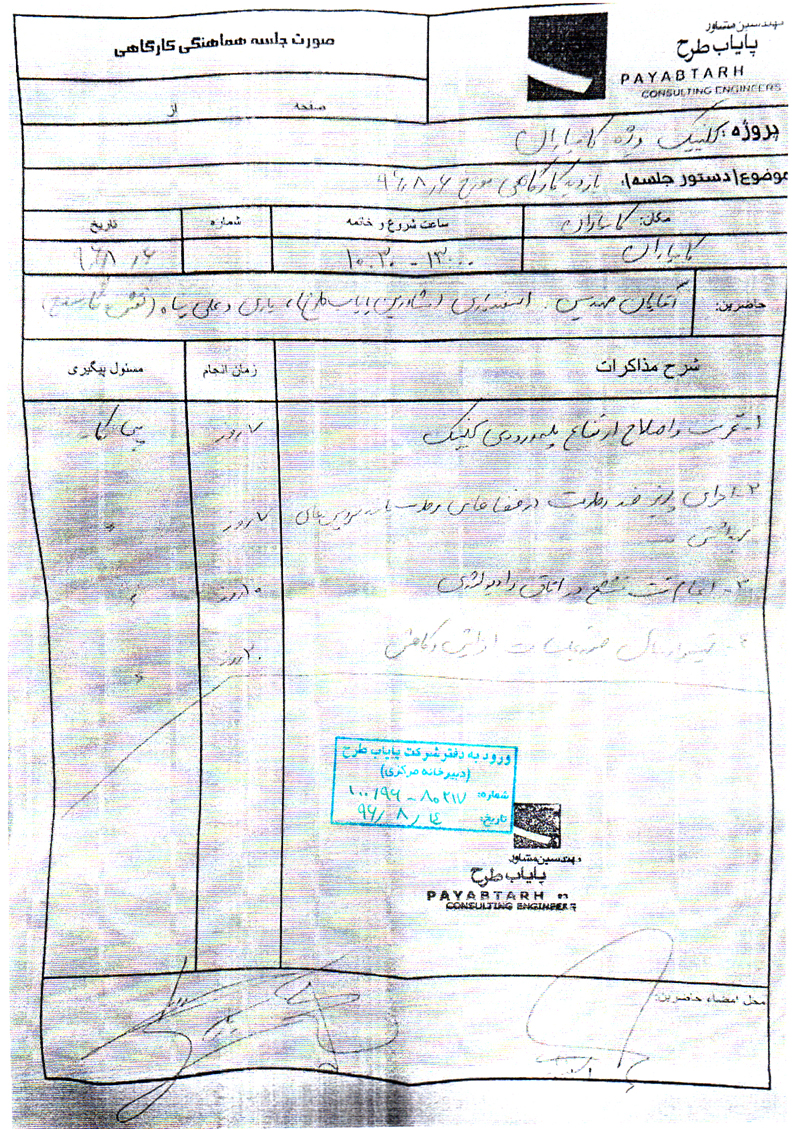 صورت جلسه هماهنگی کارگاهی
صفحه از
مهندسین مشاور
پایاب طرح
PAYABTARH
CONSULTING ENGINEERS
پروژه: کلینیک ویژه کامیاران
موضوع(دستور جلسه): بازدید کارگاهی مورخ ۹۶/۸/۶
مکان: کامیاران
ساعت شروع و خاتمه
شماره
تاریخ
کامیاران
۱۰:۳۰ - ۱۳:۰۰
حاضرین: آقایان مهندسین
شرح مذاکرات
زمان انجام
مسئول پیگیری
۱- تخریب و اصلاح ارتفاع پله ورودی کلینیک
۷ روز
۲- اجرای پریز ضد رطوبت در فضاهای
۷ روز
بهداشتی
۳- انجام تست تشعشع در اتاق رادیولوژی
۱۰ روز
۴- افزایش و کاهش
۲۰ روز
ورود به دفتر شرکت پایاب طرح
(دبیرخانه مرکزی)
شماره: ۱۰۰۱۹۶ - ۸۰۲۱۷
تاریخ: ۹۶/۸/۱۴
مهندسین مشاور
پایاب طرح
PAYABTARH
CONSULTING ENGINEERS
محل امضاء حاضرین: